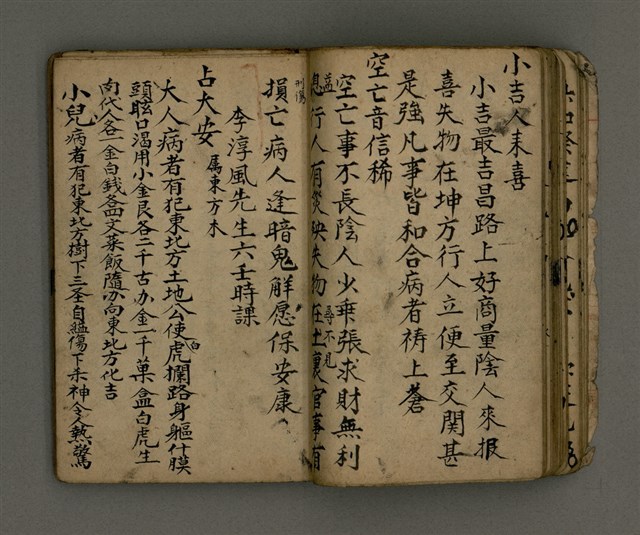 小吉人來喜
小吉最吉昌路上好商量陰人來报
喜失物在坤方行人立便至交関甚
是強凡事皆和合病者祷上蒼
空亡音信稀
空亡事不長陰人少乖張求財無利
益
息行人有災殃失物在土裏官事有
尋不見
刑傷
損亡病人逢暗鬼解愿保安康
李淳風先生六壬時課
占大安 属東方木
大人病者有犯東北方土地公使虎攔路身軀什膜
白
頭眩口渴用小金艮各二千古办金一千菓盒白虎生
向代人各一金白錢各四文菜飯隨办向東北方化吉
小兒病者有犯東北方樹下三圣自
傷下
神令
熱驚